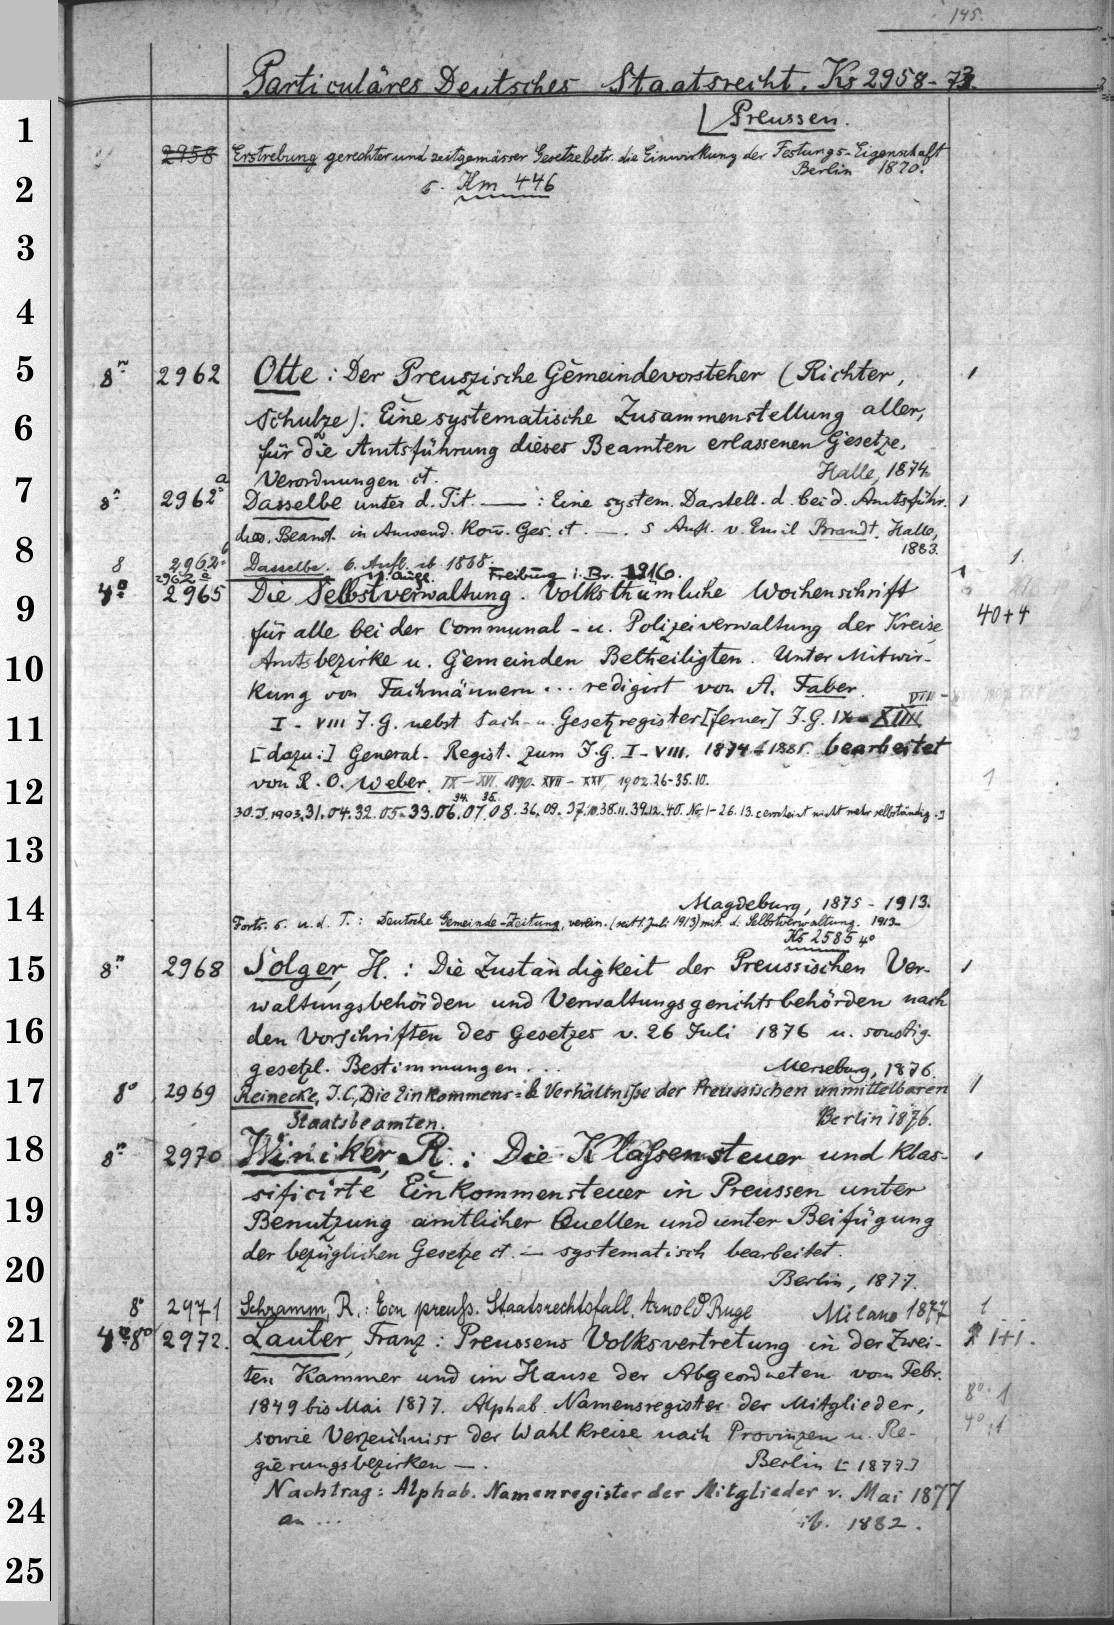 145.
Particuläres Deutsches Staatsrecht. Ks 2958-73.
Preussen.
2958 Erstrebung gerechter und zeitgemässer Gesetze betr. die Einwirkung der Festungs-Eigenschaft
Berlin 1870.
s. Km 446
8° 2962 Otte: Der Preuszische Gemeindevorsteher (Richter, 1
Schulze). Eine systematische Zusammenstellung aller,
für die Amtsführung dieses Beamten erlassenen Gesetze,
Verordnungen ct. Halle, 1874
8° 2962a Dasselbe unter d. Tit. — : Eine system. Darstell. d. bei d. Amtsführ. 1
dies. Beamt. in Anwend. kom. Ges. ct. —. 5 Aufl. v. Emil Brandt. Halle,
1883.
8 2962b Dasselbe. 6. Aufl. ib 1888. 1.
2962c Freiburg i. Br. 1916. 1
4° 2965 Die Selbstverwaltung. Volksthümliche Wochenschrift
für alle bei der Communal- u. Polizeiverwaltung der Kreise, 40+4
Amtsbezirke u. Gemeinden Betheiligten. Unter Mitwir-
kung von Fachmännern ... redigirt von A. Faber.
I-VIII J.G. nebst Sach- u. Gesetzregister [ferner] J.G. IX- XIII
VIII-
[dazu:] General-Regist. zum J.G. I-VIII. 1874-1881. bearbeitet
von R. O. Weber. IX-XVI. 1890. XVII-XXV, 1902. 26-35. 10. 1
34. 35.
30. J. 1903. 31. 04. 32. 05. 33. 06. 07. 08. 36. 09. 37. 10. 38. 11. 39. 12. 40. No. 1-26. 13. [erscheint nicht mehr selbständig.]
Magdeburg, 1875-1913.
Forts. s. u. d. T.: Deutsche Gemeinde-Zeitung, verein. (seit 1. Juli 1913) mit d. Selbstverwaltung. 1913-
Ks 2585 4°
8° 2968 Solger, H.: Die Zuständigkeit der Preussischen Ver- 1
waltungsbehörden und Verwaltungsgerichtsbehörden nach
den Vorschriften des Gesetzes v. 26 Juli 1876 u. sonstig.
gesetzl. Bestimmungen ... Merseburg, 1876.
8° 2969 Reinecke, J. C., Die Einkommens-Verhältnisse der Preussischen unmittelbaren 1
Staatsbeamten. Berlin 1876.
8° 2970 Winiker, R.: Die Klassensteuer und klas- 1
sificirte Einkommensteuer in Preussen unter
Benutzung amtlicher Quellen und unter Beifügung
der bezüglichen Gesetze ct. — systematisch bearbeitet.
Berlin, 1877.
8° 2971 Schramm, R.: Ein preuss. Staatsrechtsfall. Arnold Ruge Milano 1877 1
4° 8° 2972. Lauter, Franz: Preussens Volksvertretung in der Zwei- 1+1.
ten Kammer und im Hause der Abgeordneten vom Febr.
1849 bis Mai 1877. Alphab. Namensregister der Mitglieder, 8° 1
sowie Verzeichniss der Wahlkreise nach Provinzen u. Re- 4° 1
gierungsbezirken —. Berlin [1877]
Nachtrag: Alphab. Namenregister der Mitglieder v. Mai 1877
an ... ib. 1882.
1
2
3
4
5
6
7
8
9
10
11
12
13
14
15
16
17
18
19
20
21
22
23
24
25